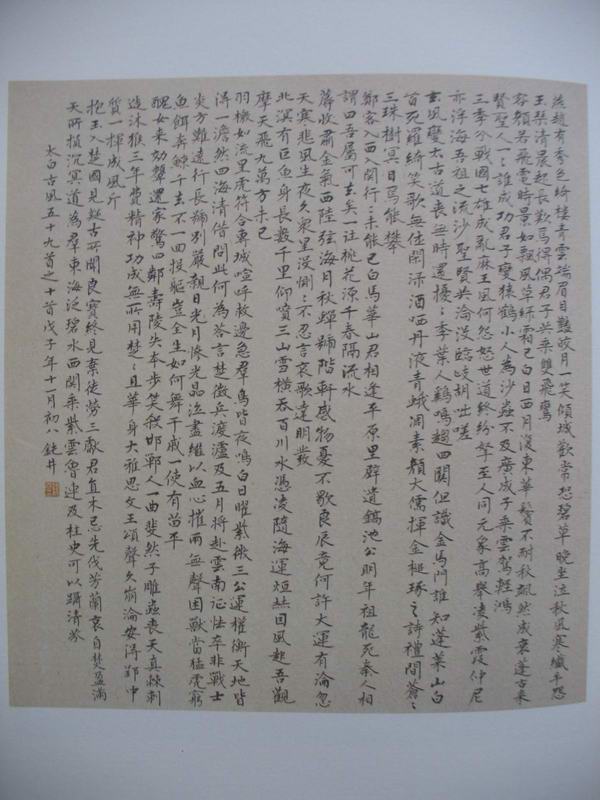 燕趙有秀色綺樓青雲端眉目艷皎月一笑傾城歡常恐碧草晚坐泣秋風寒纖手怨
玉琴清晨起長歎焉得偶君子共乘雙飛鸞
容顏若飛電時景如飄風草綠霜已白日西月復東華鬢不耐秋颯然成衰蓬古來
賢聖人一一誰成功君子變猿鶴小人為沙蟲不及廣成子乘雲駕輕鴻
三季分戰國七雄成亂麻王風何怨怒世道終紛拏至人洞元象高舉凌紫霞仲尼
亦浮海吾祖之流沙聖賢共淪沒臨歧胡咄嗟
玄風變太古道喪無時還擾々季葉人雞鳴趨四關但識金馬門誰知蓬萊山白
首死羅綺笑歌無休閑淥酒哂丹液青蛾凋素顏大儒揮金槌琢之詩禮間蒼々
三珠樹冥目焉能攀
鄭客入西入關行々未能已白馬華山君相逢平原里璧遺鎬池公明年祖龍死秦人相
謂曰吾屬可去矣一往桃花源千春隔流水
蓐收肅金氣西陸弦海月秋蟬號階軒感物憂不歇良辰竟何許大運有淪忽
天寒悲風生夜久眾星沒惻々不忍言哀歌達明發
北溟有巨魚身長數千里仰噴三山雪橫吞百川水憑凌隨海運烜赫因風起吾觀
摩天飛九萬方未已
羽檄如流星虎符合專城喧呼救邊急群鳥皆夜鳴白日曜紫微三公運權衡天地皆
得一澹然四海清借問此何為答言楚徵兵渡瀘及五月將赴雲南征怯卒非戰士
炎方難遠行長號別嚴親日光月慘光晶泣盡繼以血心摧兩無聲困獸當猛虎窮
魚餌奔鯨千去不一回投軀豈全生如何舞干戚一使有苗平
醜女來効顰還家驚四鄰壽陵失本步笑殺邯鄲人一曲斐然子雕蟲喪天真棘刺
造沐猴三年費精神功成無所用楚々且華身大雅思文王頌聲久崩淪安得郢中
質一揮成風斤
抱玉入楚國見疑古所聞良寶終見棄徒勞三獻君直木忌先伐芳蘭哀自焚盈滿
天所損沉冥道為群東海泛碧水西關乘紫雲魯連及柱史可以躡清芬
太白古風五十九首之十首戊子年十一月初八鈍井